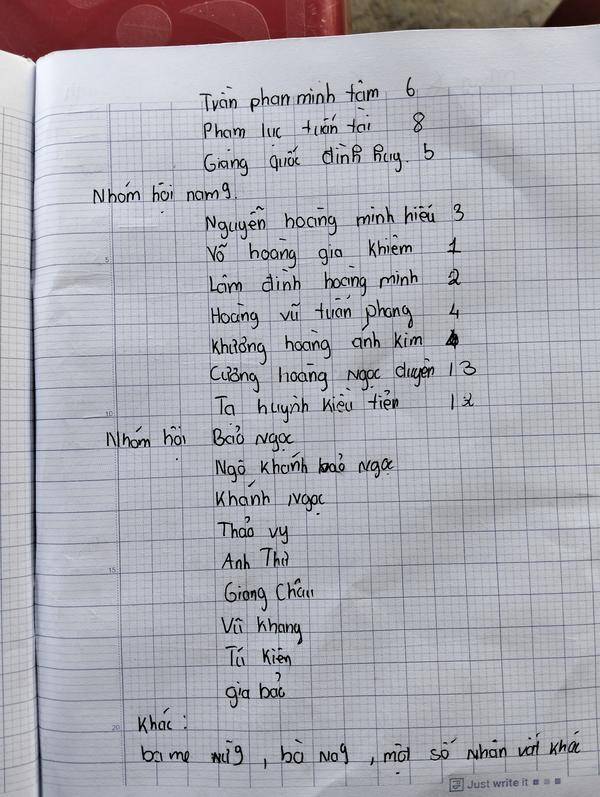 Trần phan minh tâm 6
Phạm lục tuấn tài 8
Giảng quốc đình huy. 5
Nhóm hội nam 9.
Nguyễn hoàng minh hiếu 3
Võ hoàng gia khiêm 1
Lâm đình hoàng minh 2
Hoàng vũ tuấn phong 4
Khương hoàng ánh kim
Cường hoàng ngọc duyên 13
Tạ huỳnh kiều tiên 12
Nhóm hội Bảo Ngọc
Ngô khánh bảo Ngọc
Khánh Ngọc
Thảo vy
Anh Thư
Giang Châu
Vũ Khang
Tú Kiên
gia bảo
Khác:
ba mẹ, bà, một số nhân vật khác
5
10
15
20
Just write it